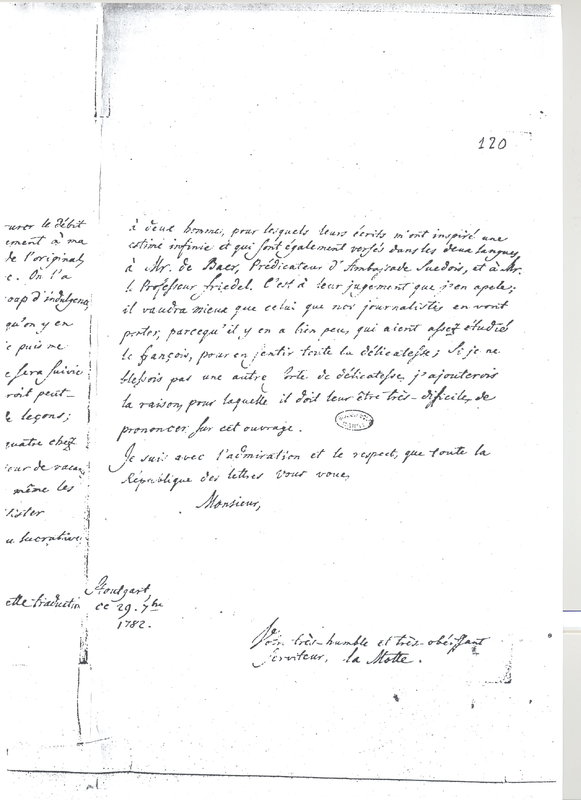 120
à deux hommes, pour lesquels leurs écrits m'ont inspiré une
estime infinie et qui sont également versés dans les deux langues,
à Mr. de Baer, Prédicateur d'Ambassade Suedois, et à Mr.
l. Professeur Friedel. C'est à leur jugement que j'en apele;
il vaudra mieux que celui que nos journalistes en vont
porter, parcequ'il y en a bien peu, qui aient assez etudié
le françois, pour en sentir toute la délicatesse; Si je ne
blessois pas une autre sorte de délicatesse, j'ajouterois
la raison, pour laquelle il doit leur être très-difficile, de
prononcer sur cet ouvrage.
Je suis avec l'admiration et le respect, que toute la
République des lettres vous voue,
Monsieur,
Stoutgart,
ce 29. 7bre
1782.
très-humble et très-obéissant
serviteur, la Motte.
urer le débit
ement à ma
de l'original,
e. On l'a
oup d'indulgence
qu'on y en
e puis me
e sera suivie
roit peut-
leçons;
quatre chez
eur de vacan
même les
lister
u lucrative
ette traduction